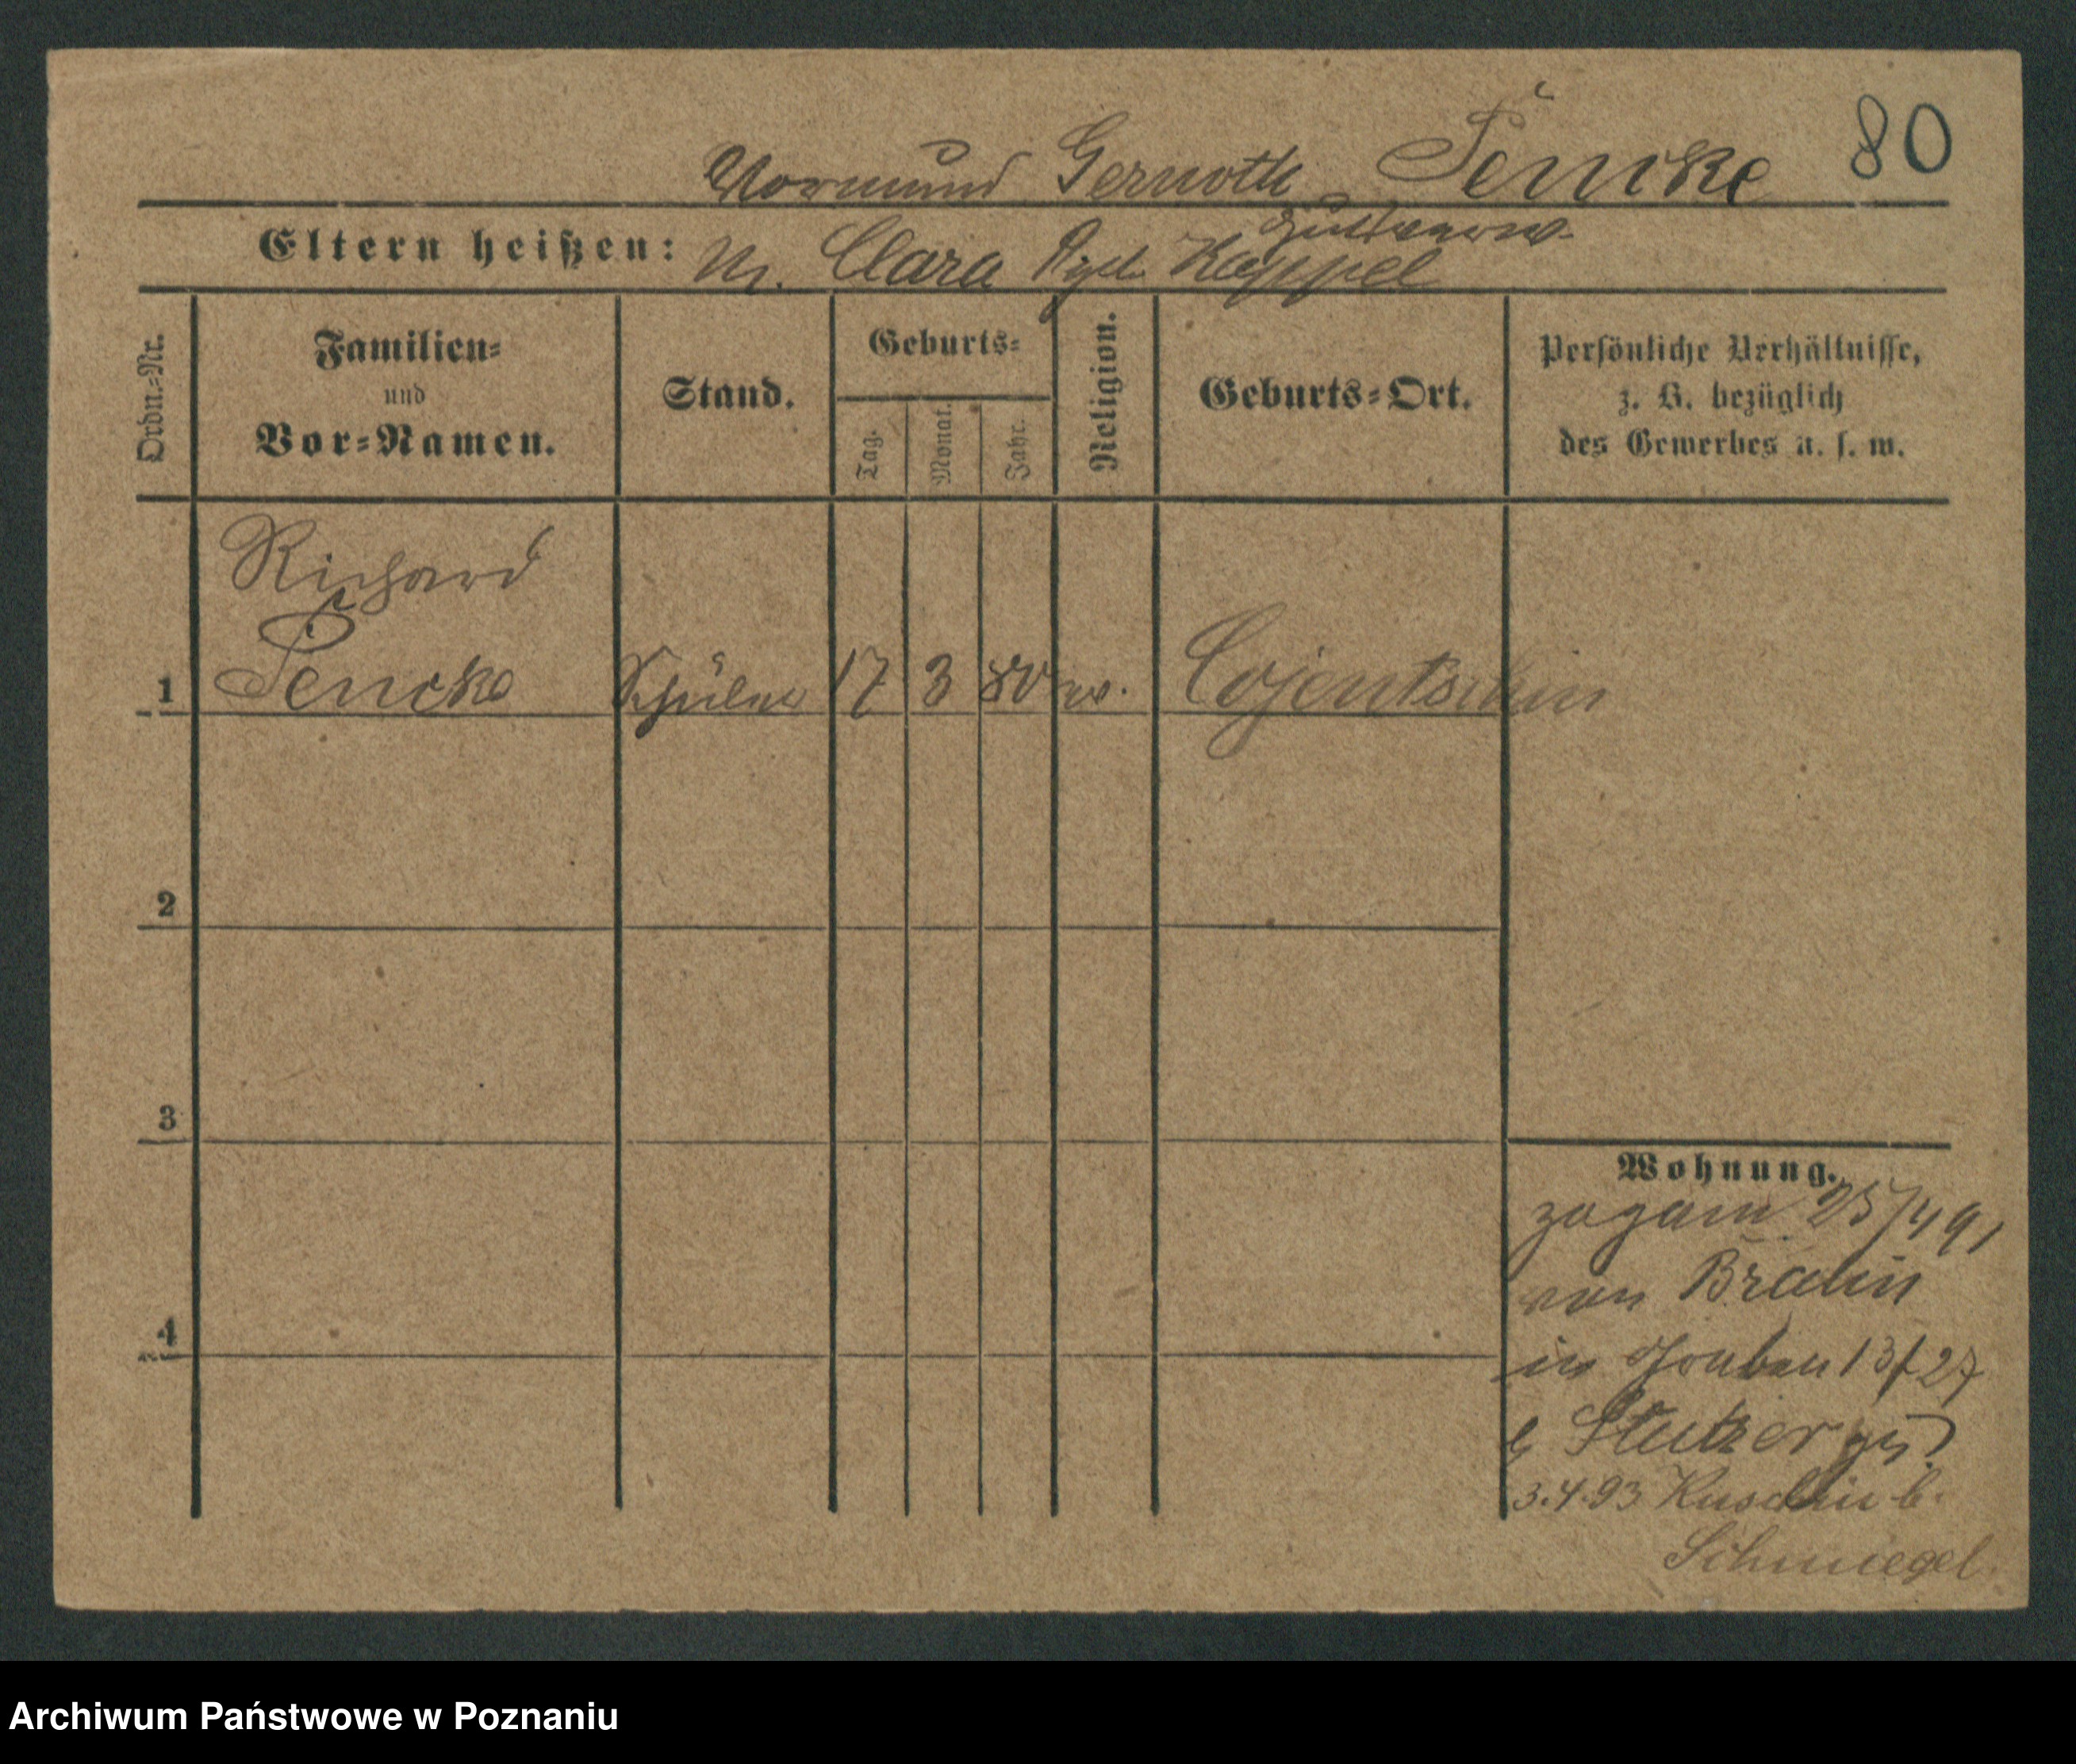 80
Vormund Gernoth Jencke
Gutsverw.
Eltern heißen: M. Clara Kappel
Ordn.=Nr.
Familien=
und
Vor=Namen.
Stand.
Geburts=
Tag.
Monat.
Jahr.
Religion.
Geburts=Ort.
Persönliche Verhältnisse,
z. B. bezüglich
des Gewerbes u. s. w.
Richard
1 Jencke Schüler 17 3 80 ev. Cojentschin
2
3
4
Wohnung.
zog am 25/4 91
von Bralin
in Gruben 13/27
b Stutzer
3.4.93 Kuschlin b.
Schmiegel.
Archiwum Państwowe w Poznaniu